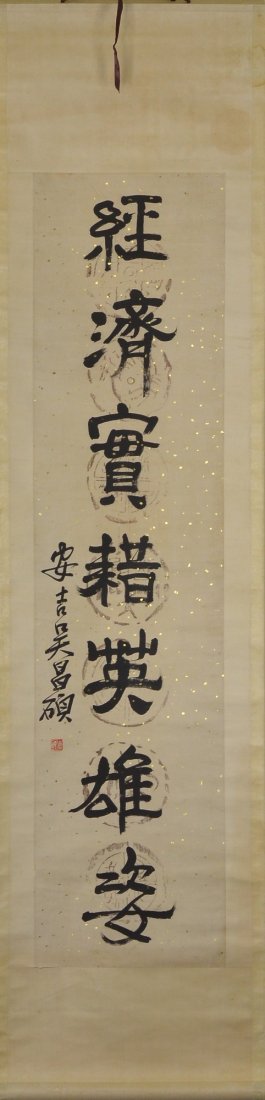 經濟實耤英雄姿
安吉吴昌碩